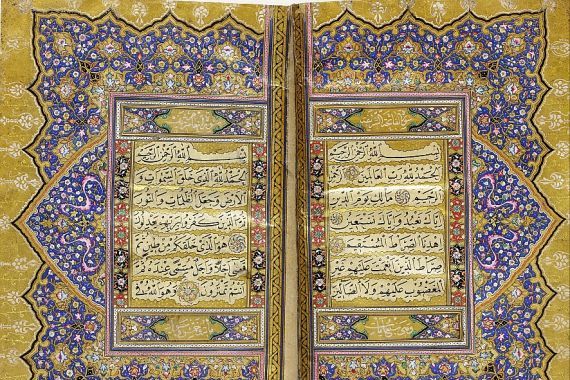 بسم الله الرحمن الرحيم
الحمد لله رب العالمين الرحمن
الرحيم مالك يوم الدين
اياك نعبد واياك نستعين
اهدنا الصراط المستقيم
صراط الذين انعمت عليهم غير
المغضوب عليهم ولا الضالين
بسم الله الرحمن الرحيم
الحمد لله الذي خلق السموات و
الارض وجعل الظلمات والنور
ثم الذين كفروا بربهم
هو الذي خلقكم من طين ثم
قضى اجلا واجل مسمى عنده ثم
انتم تمترون